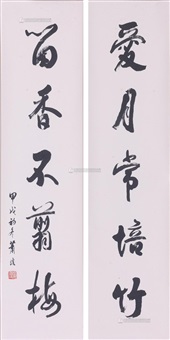 愛月常培竹
留香不翦梅
甲戌初冬